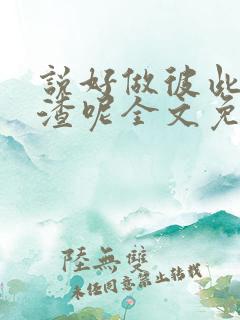 説好做彼此
渣呢全文免
陸無雙
未经同意禁止转载